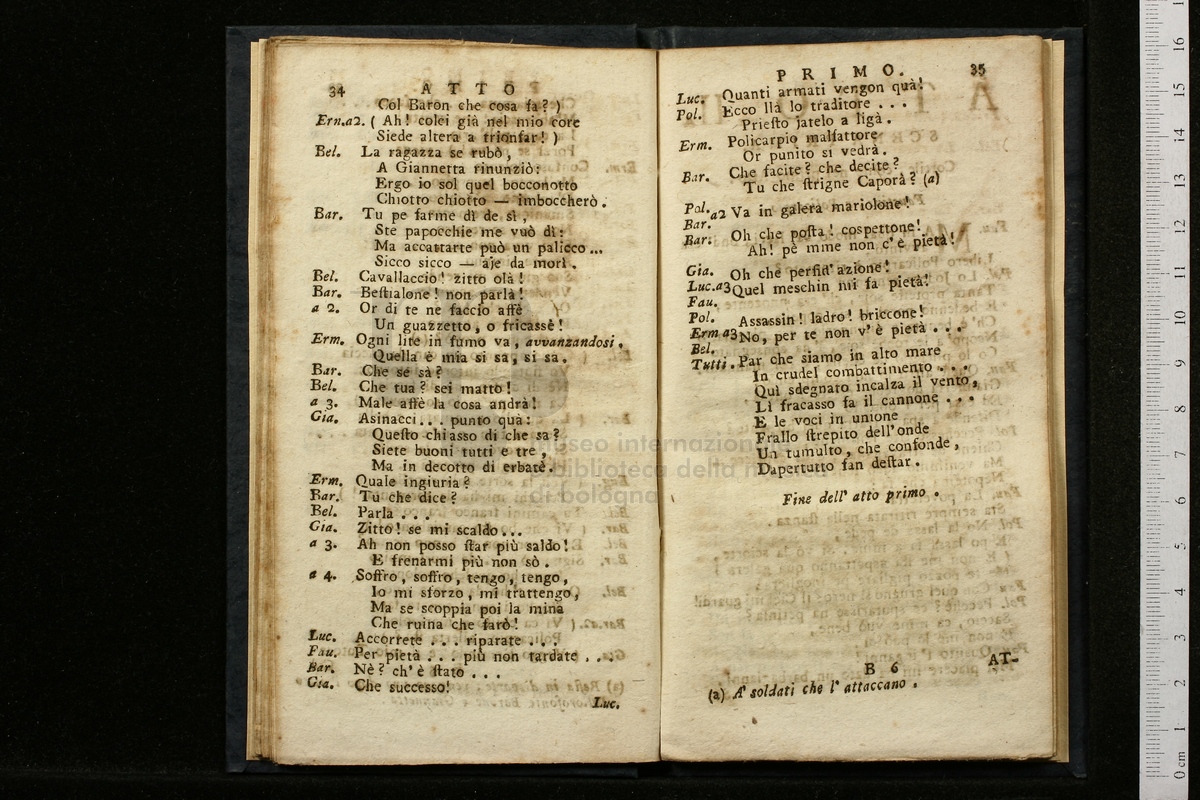 34 ATTO
Col Baron che cosa fa? )
Ern.a2. ( Ah! colei già nel mio core
Siede altera a trionfar! )
Bel. La ragazza se rubò,
A Giannetta rinunziò:
Ergo io sol quel bocconotto
Chiotto chiotto — imboccherò.
Bar. Tu pe farme dì de sì,
Ste papocchie me vuò dì:
Ma accattarte può un palicco...
Sicco sicco — aje da morì.
Bel. Cavallaccio! zitto olà!
Bar. Beſtialone! non parlà!
a 2. Or di te ne faccio affè
Un guazzetto, o fricassè!
Erm. Ogni lite in fumo va, avvanzandosi.
Quella è mia si sa, si sa.
Bar. Che se sà?
Bel. Che tua? sei matto!
a 3. Male affè la cosa andrà!
Gia. Asinacci... punto qua:
Queſto chiasso di che sa?
Siete buoni tutti e tre,
Ma in decotto di erbate.
Erm. Quale ingiuria?
Bar. Tu che dice?
Bel. Parla...
Gia. Zitto! se mi scaldo...
a 3. Ah non posso ſtar più saldo!
E frenarmi più non sò.
a 4. Soffro, soffro, tengo, tengo,
Io mi sforzo, mi trattengo,
Ma se scoppia poi la mina
Che ruina che farò!
Luc. Accorrete... riparate...
Fau. Per pietà... più non tardate...
Bar. Nè? ch' è ſtato...
Gia. Che successo!
Luc.
PRIMO. 35
Luc. Quanti armati vengon quà!
Pol. Ecco llà lo traditore...
Prieſto jatelo a ligà.
Erm. Policarpio malfattore
Or punito si vedrà.
Bar. Che facite? che decite?
Tu che ſtrigne Caporà? (a)
Pol. a2 Va in galera mariolone!
Bar.
Bar: Oh che poſta! cospettone!
Ah! pè mme non c' è pietà!
Gia. Oh che perfid' azione!
Luc.a3 Quel meschin mi fa pietà!
Fau.
Pol. Assassin! ladro! briccone!
Erm a3 No, per te non v' è pietà...
Bel.
Tutti. Par che siamo in alto mare
In crudel combattimento...
Quì sdegnato incalza il vento,
Lì fracasso fa il cannone...
E le voci in unione
Frallo ſtrepito dell' onde
Un tumulto, che confonde,
Dapertutto fan deſtar.
Fine dell' atto primo.
B 6 AT-
(a) A' soldati che l' attaccano.
museo internazionale
biblioteca della musica
di bologna